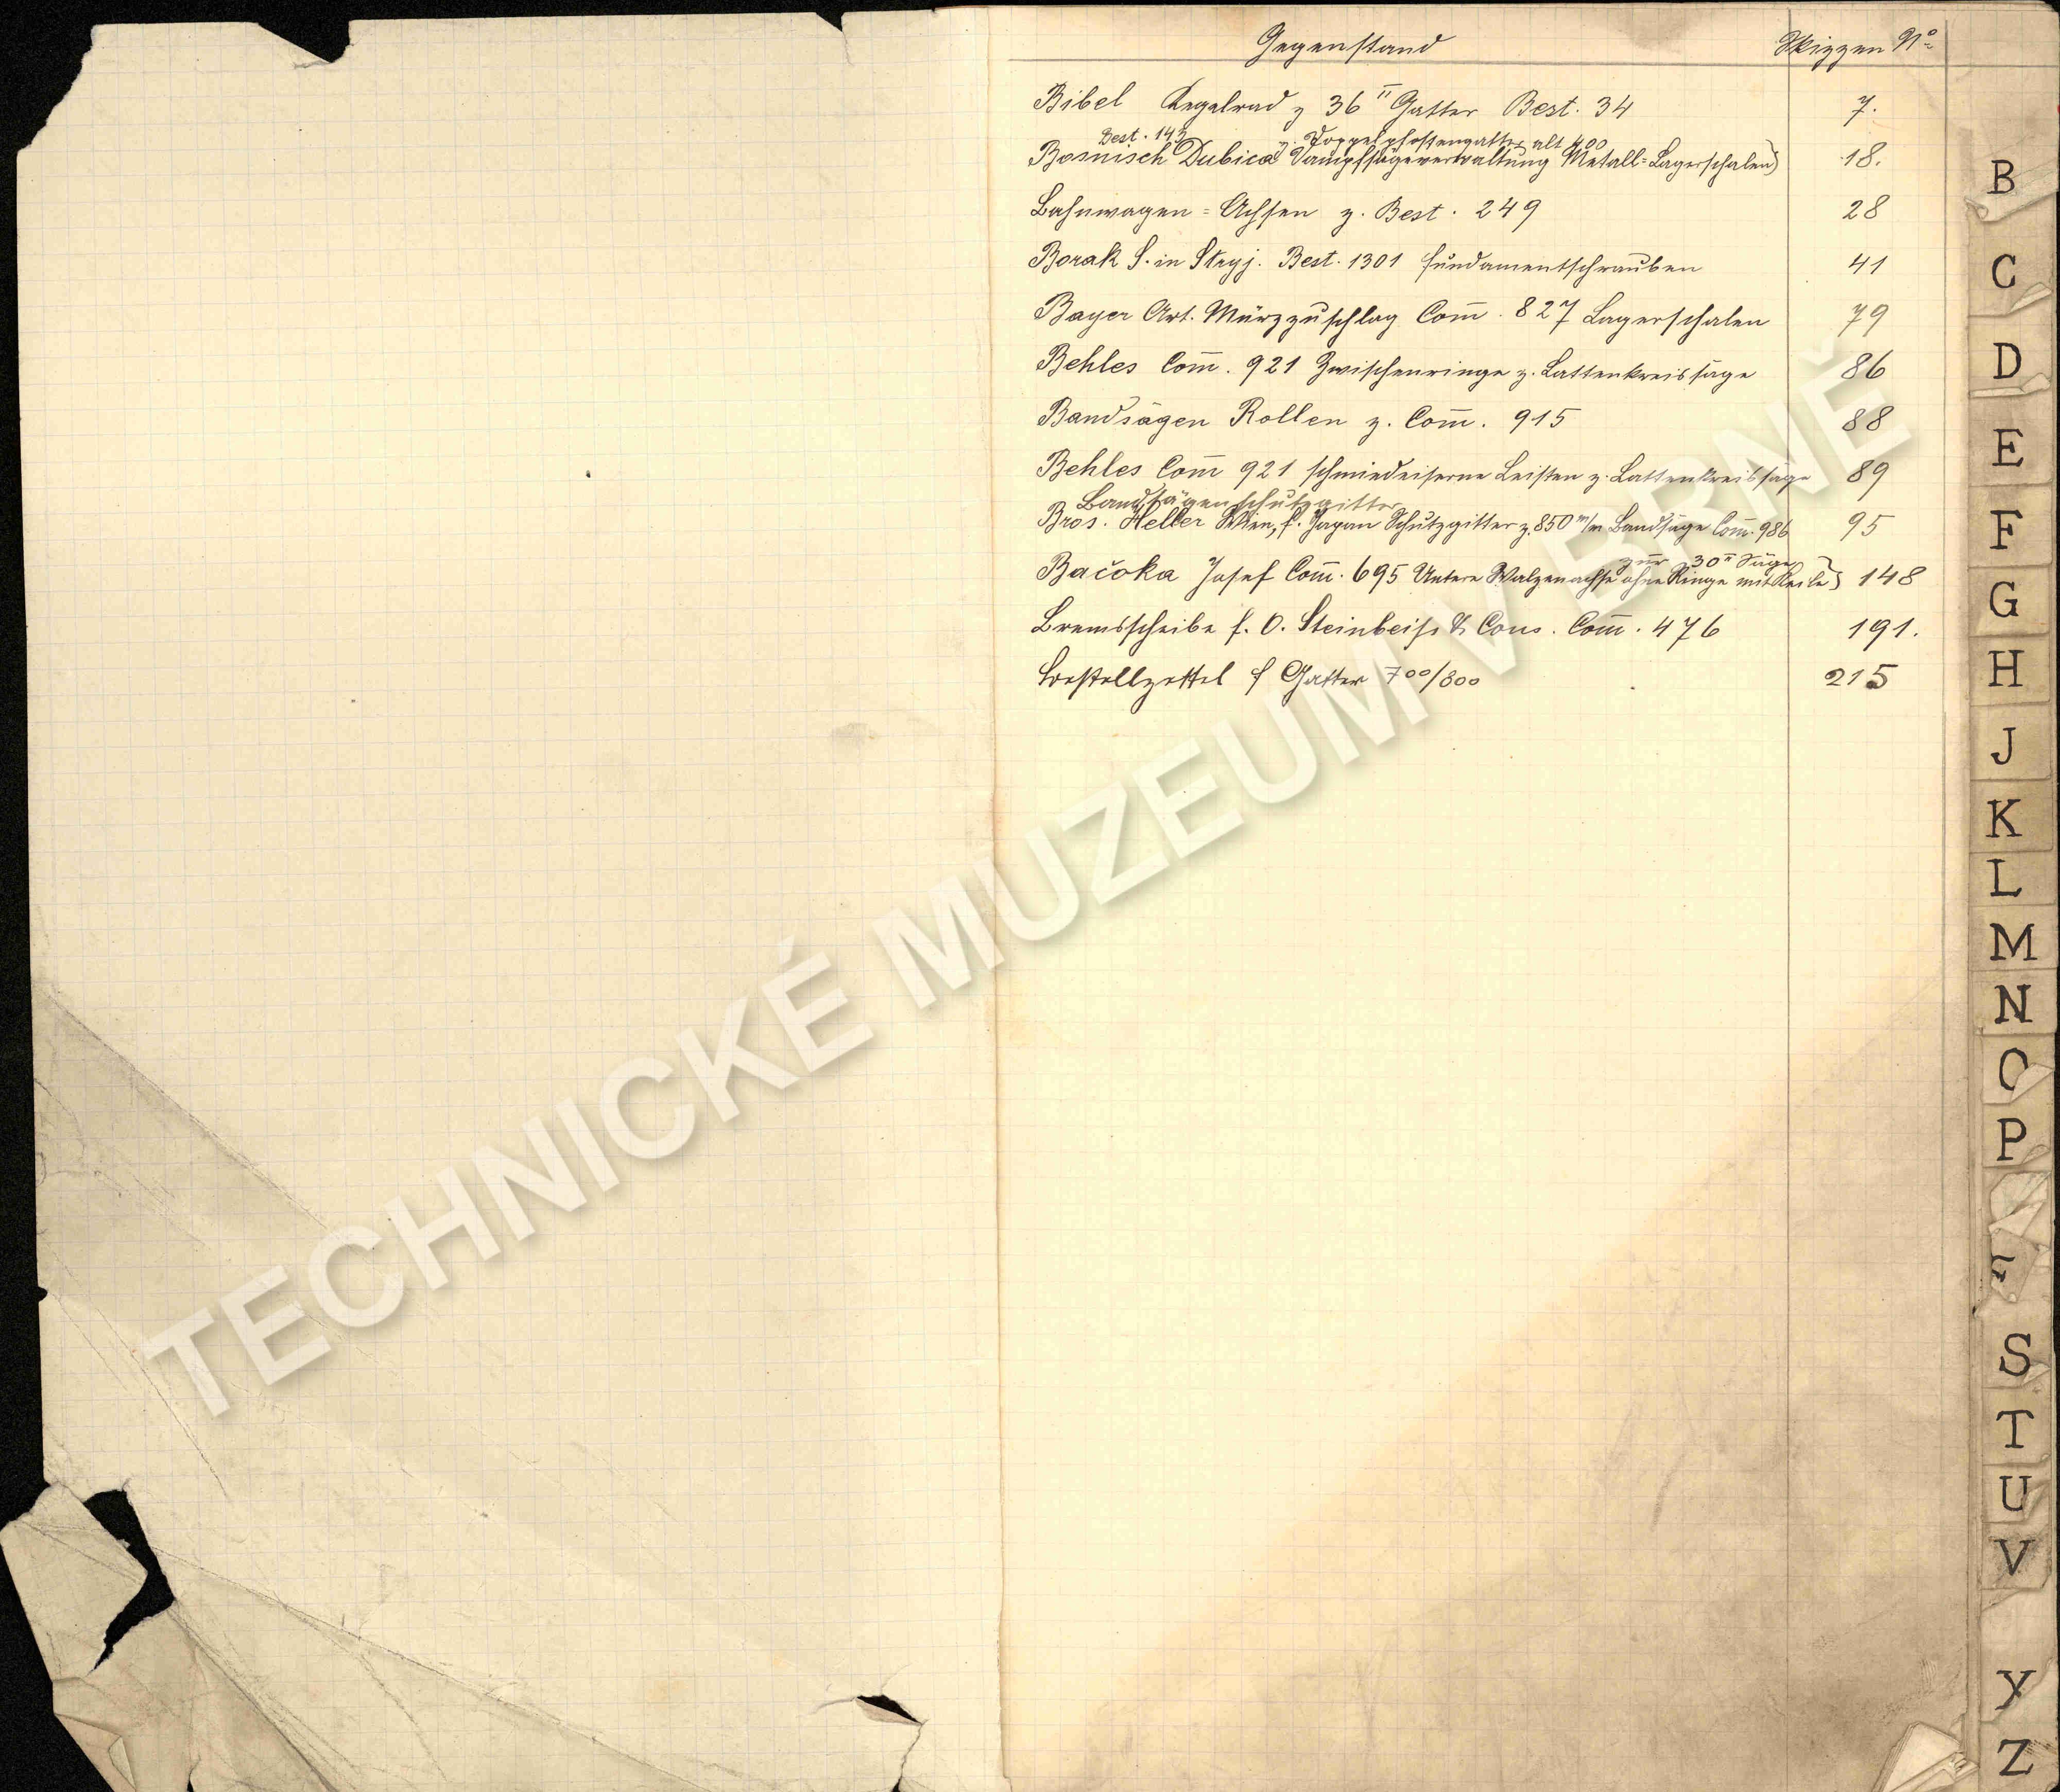 Gegenstand Skizzen No
Bibel Kegelrad z 36" Gatter Best. 34 7.
Best. 143 z Doppelpfostengatter alt 400
Bosnisch Dubica Dampfsägeverwaltung Metall=Lagerschalen) 18.
Bahnwagen=Achsen z. Best. 249 28
Borak S. in Stryj. Best. 1301 Fundamentschrauben 41
Bayer Art. Mürzzuschlag Com̄. 827 Lagerschalen 79
Behles Com̄. 921 Zwischenringe z. Lattenkreissäge 86
Bandsägen Rollen z. Com̄. 915 88
Behles Com̄ 921 schmiedeiserne Leisten z. Lattenkreissäge 89
Bandsägenschutzgitter
Bros. Heller Wien, f. Japan Schutzgitter z. 850 m/m Bandsäge Com̄. 986 95
zur 30" Säge
Bačoka Josef Com̄. 695 Untere Walzenachse ohne Ringe mit Keile) 148
Bremsscheibe f. O. Steinbeiss & Cons. Com̄. 476 191.
Bestellzettel f Gatter 700/800 215
B
C
D
E
F
G
H
J
K
L
M
N
O
P
S
T
U
V
Y
Z
TECHNICKÉ MUZEUM V BRNĚ